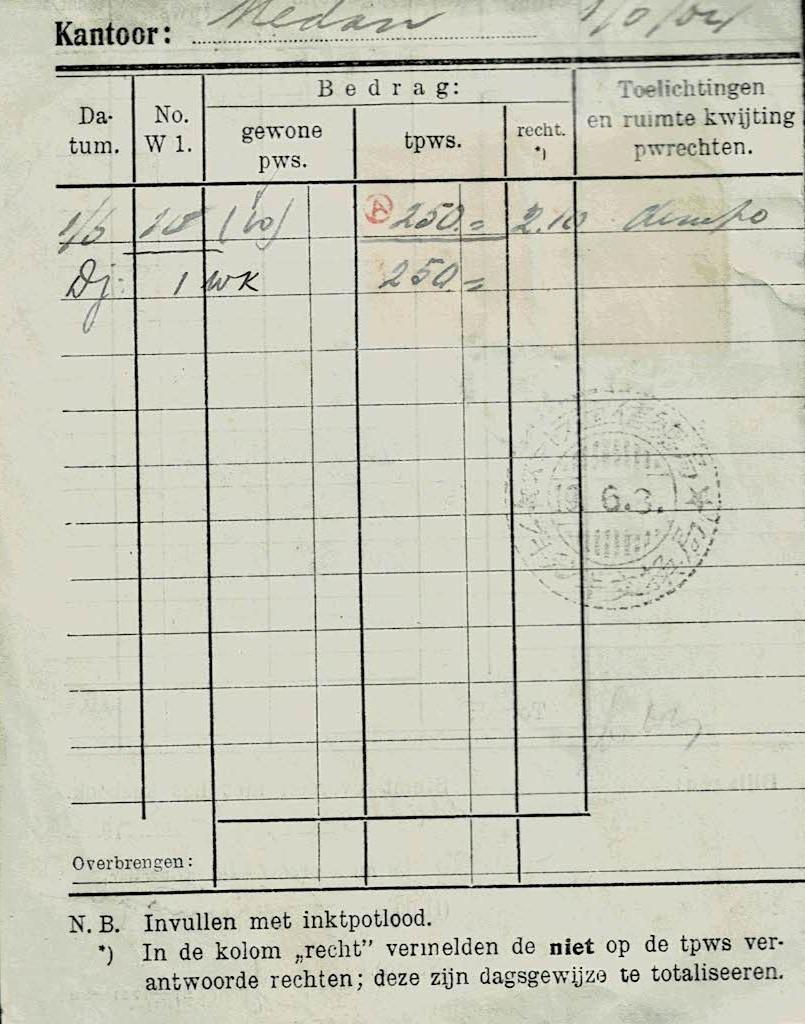 Kantoor: Medan
Bedrag:
Da-
tum.
No.
W 1.
gewone
pws.
tpws.
recht.
*)
Toelichtingen
en ruimte kwijting
pwrechten.
(10) A 250.= 2.10
Dj: 1 WK 250.=
6.3.
Overbrengen:
N. B. Invullen met inktpotlood.
*) In de kolom „recht” vermelden de niet op de tpws ver-
antwoorde rechten; deze zijn dagsgewijze te totaliseeren.